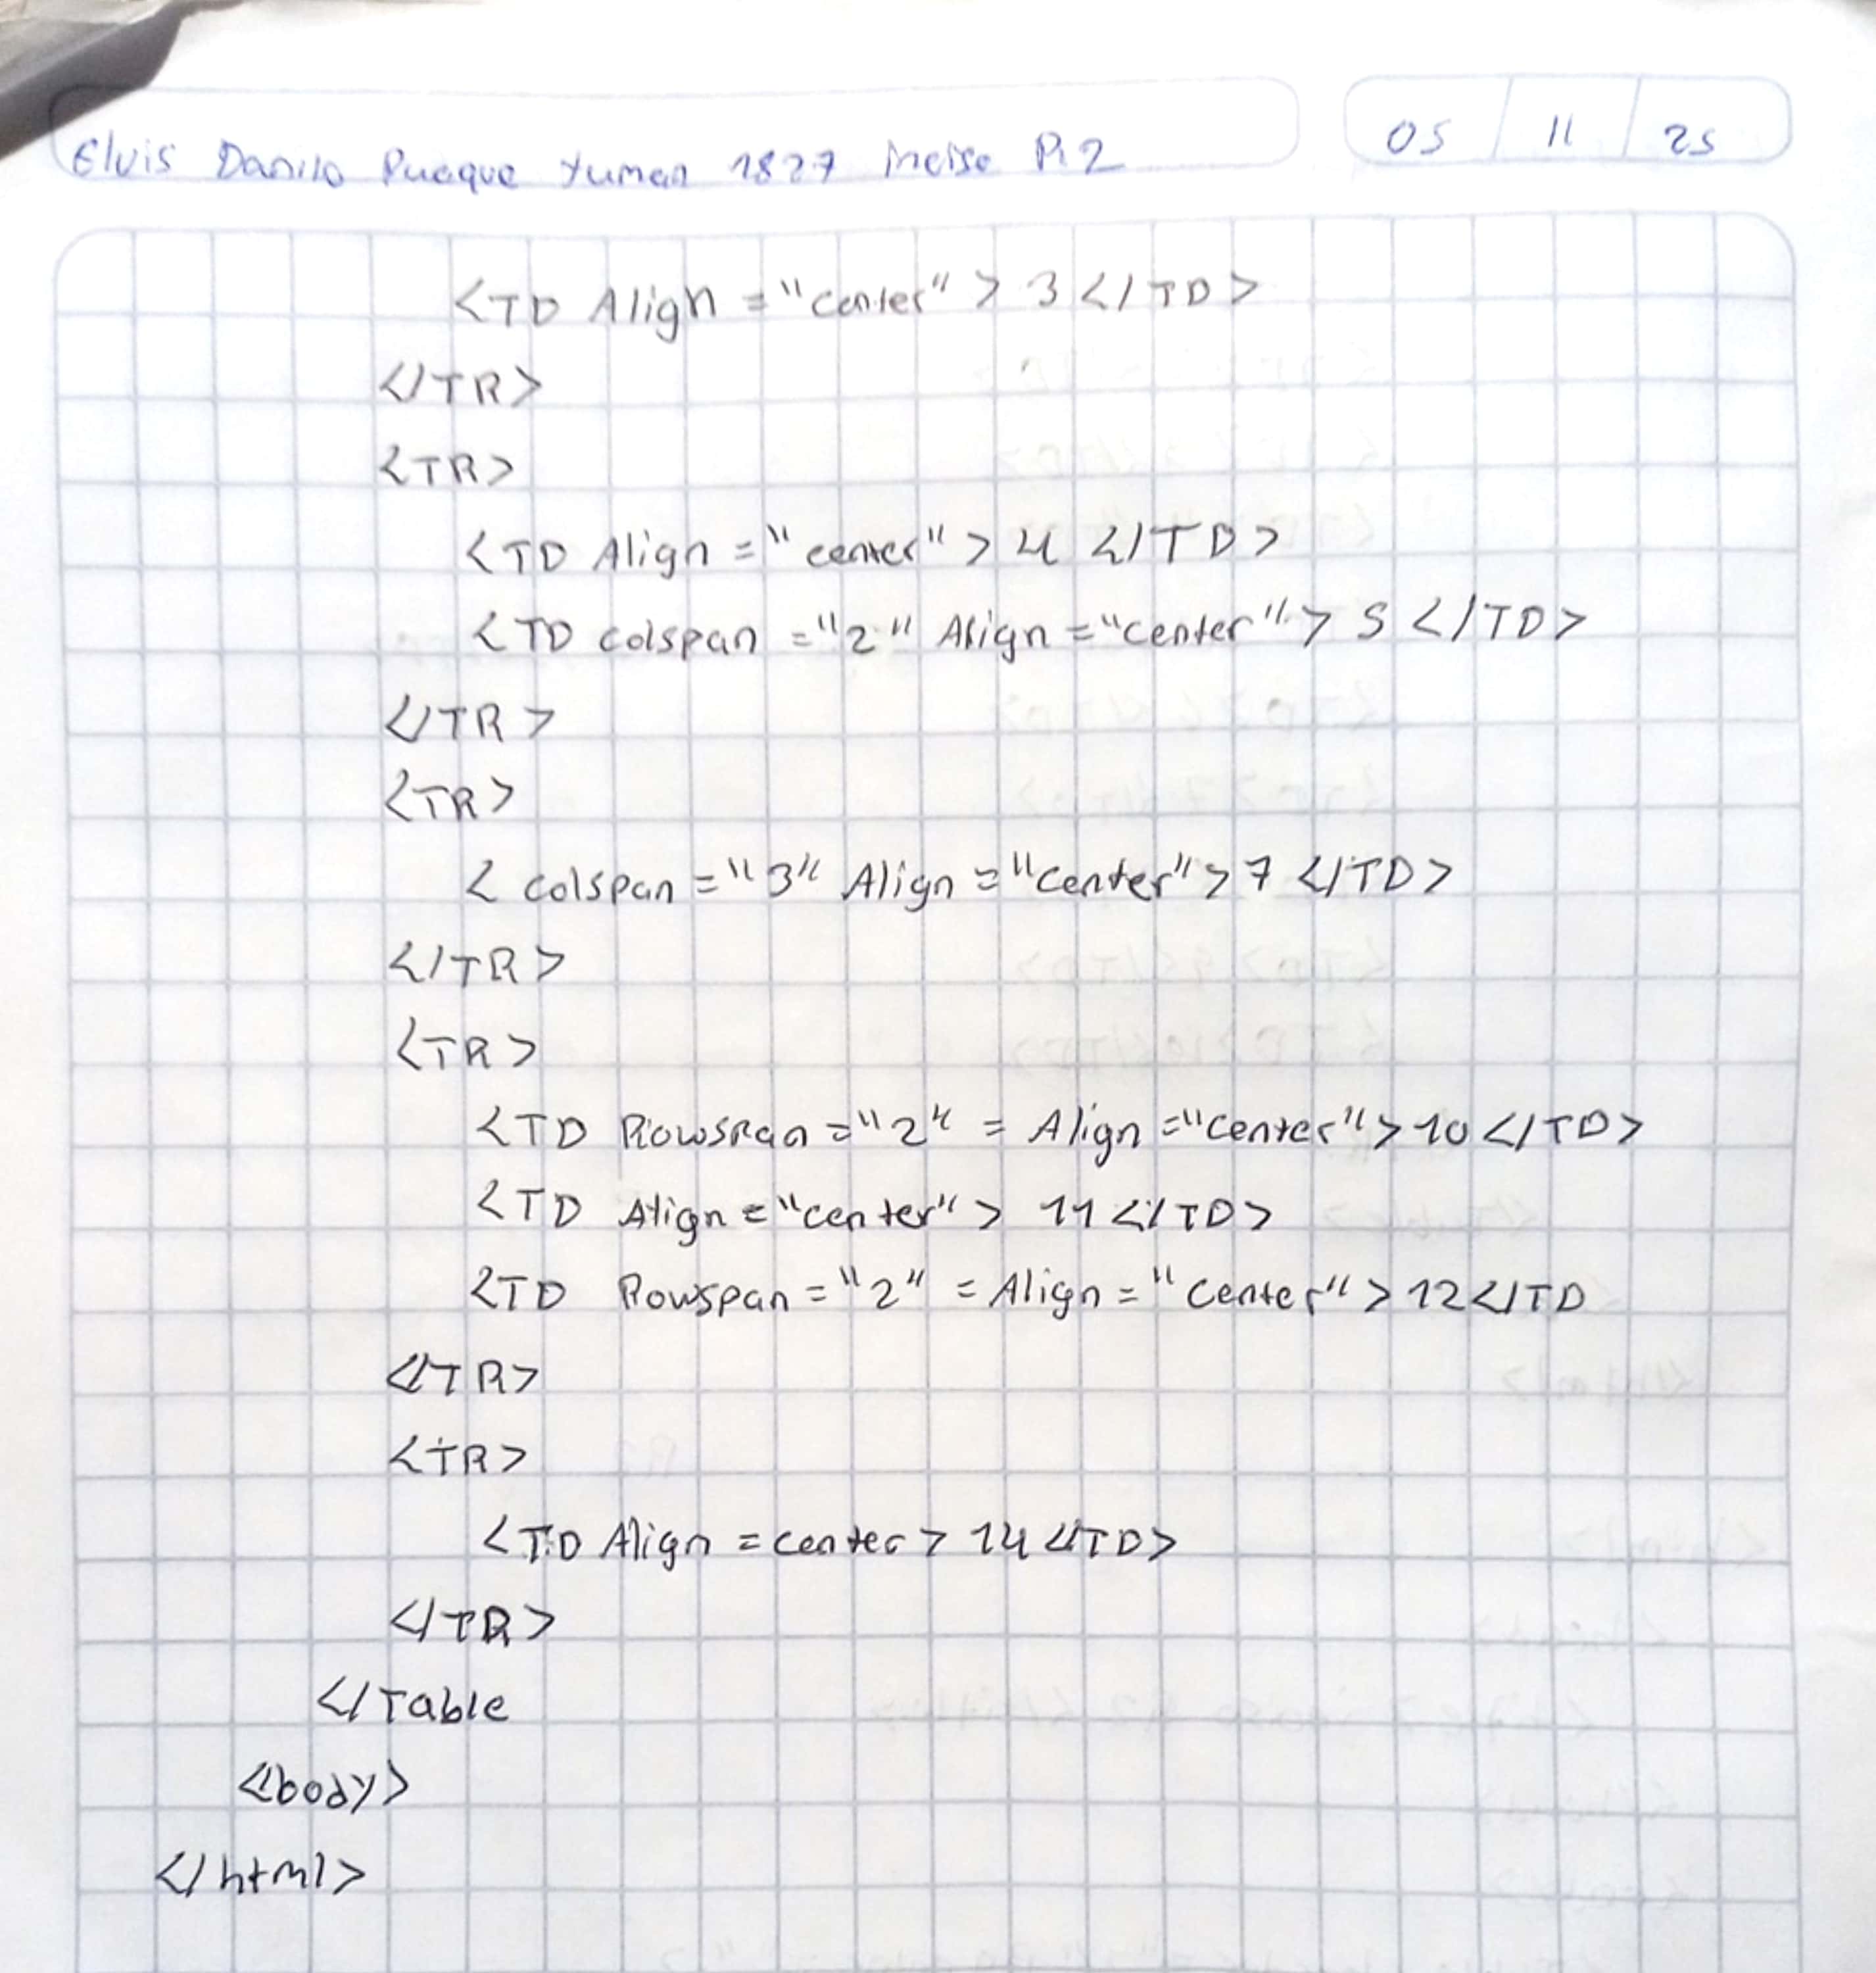 Elvis Danilo Puaque Yuman 1827 inciso P.2 05 11 25
<TD Align = "center" > 3 </TD>
</TR>
<TR>
<TD Align = "center" > 4 </TD>
<TD colspan = "2" Align = "center" > 5 </TD>
</TR>
<TR>
< colspan = "3" Align = "center" > 7 </TD>
</TR>
<TR>
<TD Rowspan = "2" = Align = "center" > 10 </TD>
<TD Align = "center" > 11 </TD>
<TD Rowspan = "2" = Align = "center" > 12 </TD
</TR>
<TR>
<TD Align = center > 14 </TD>
</TR>
</Table
</body>
</html>